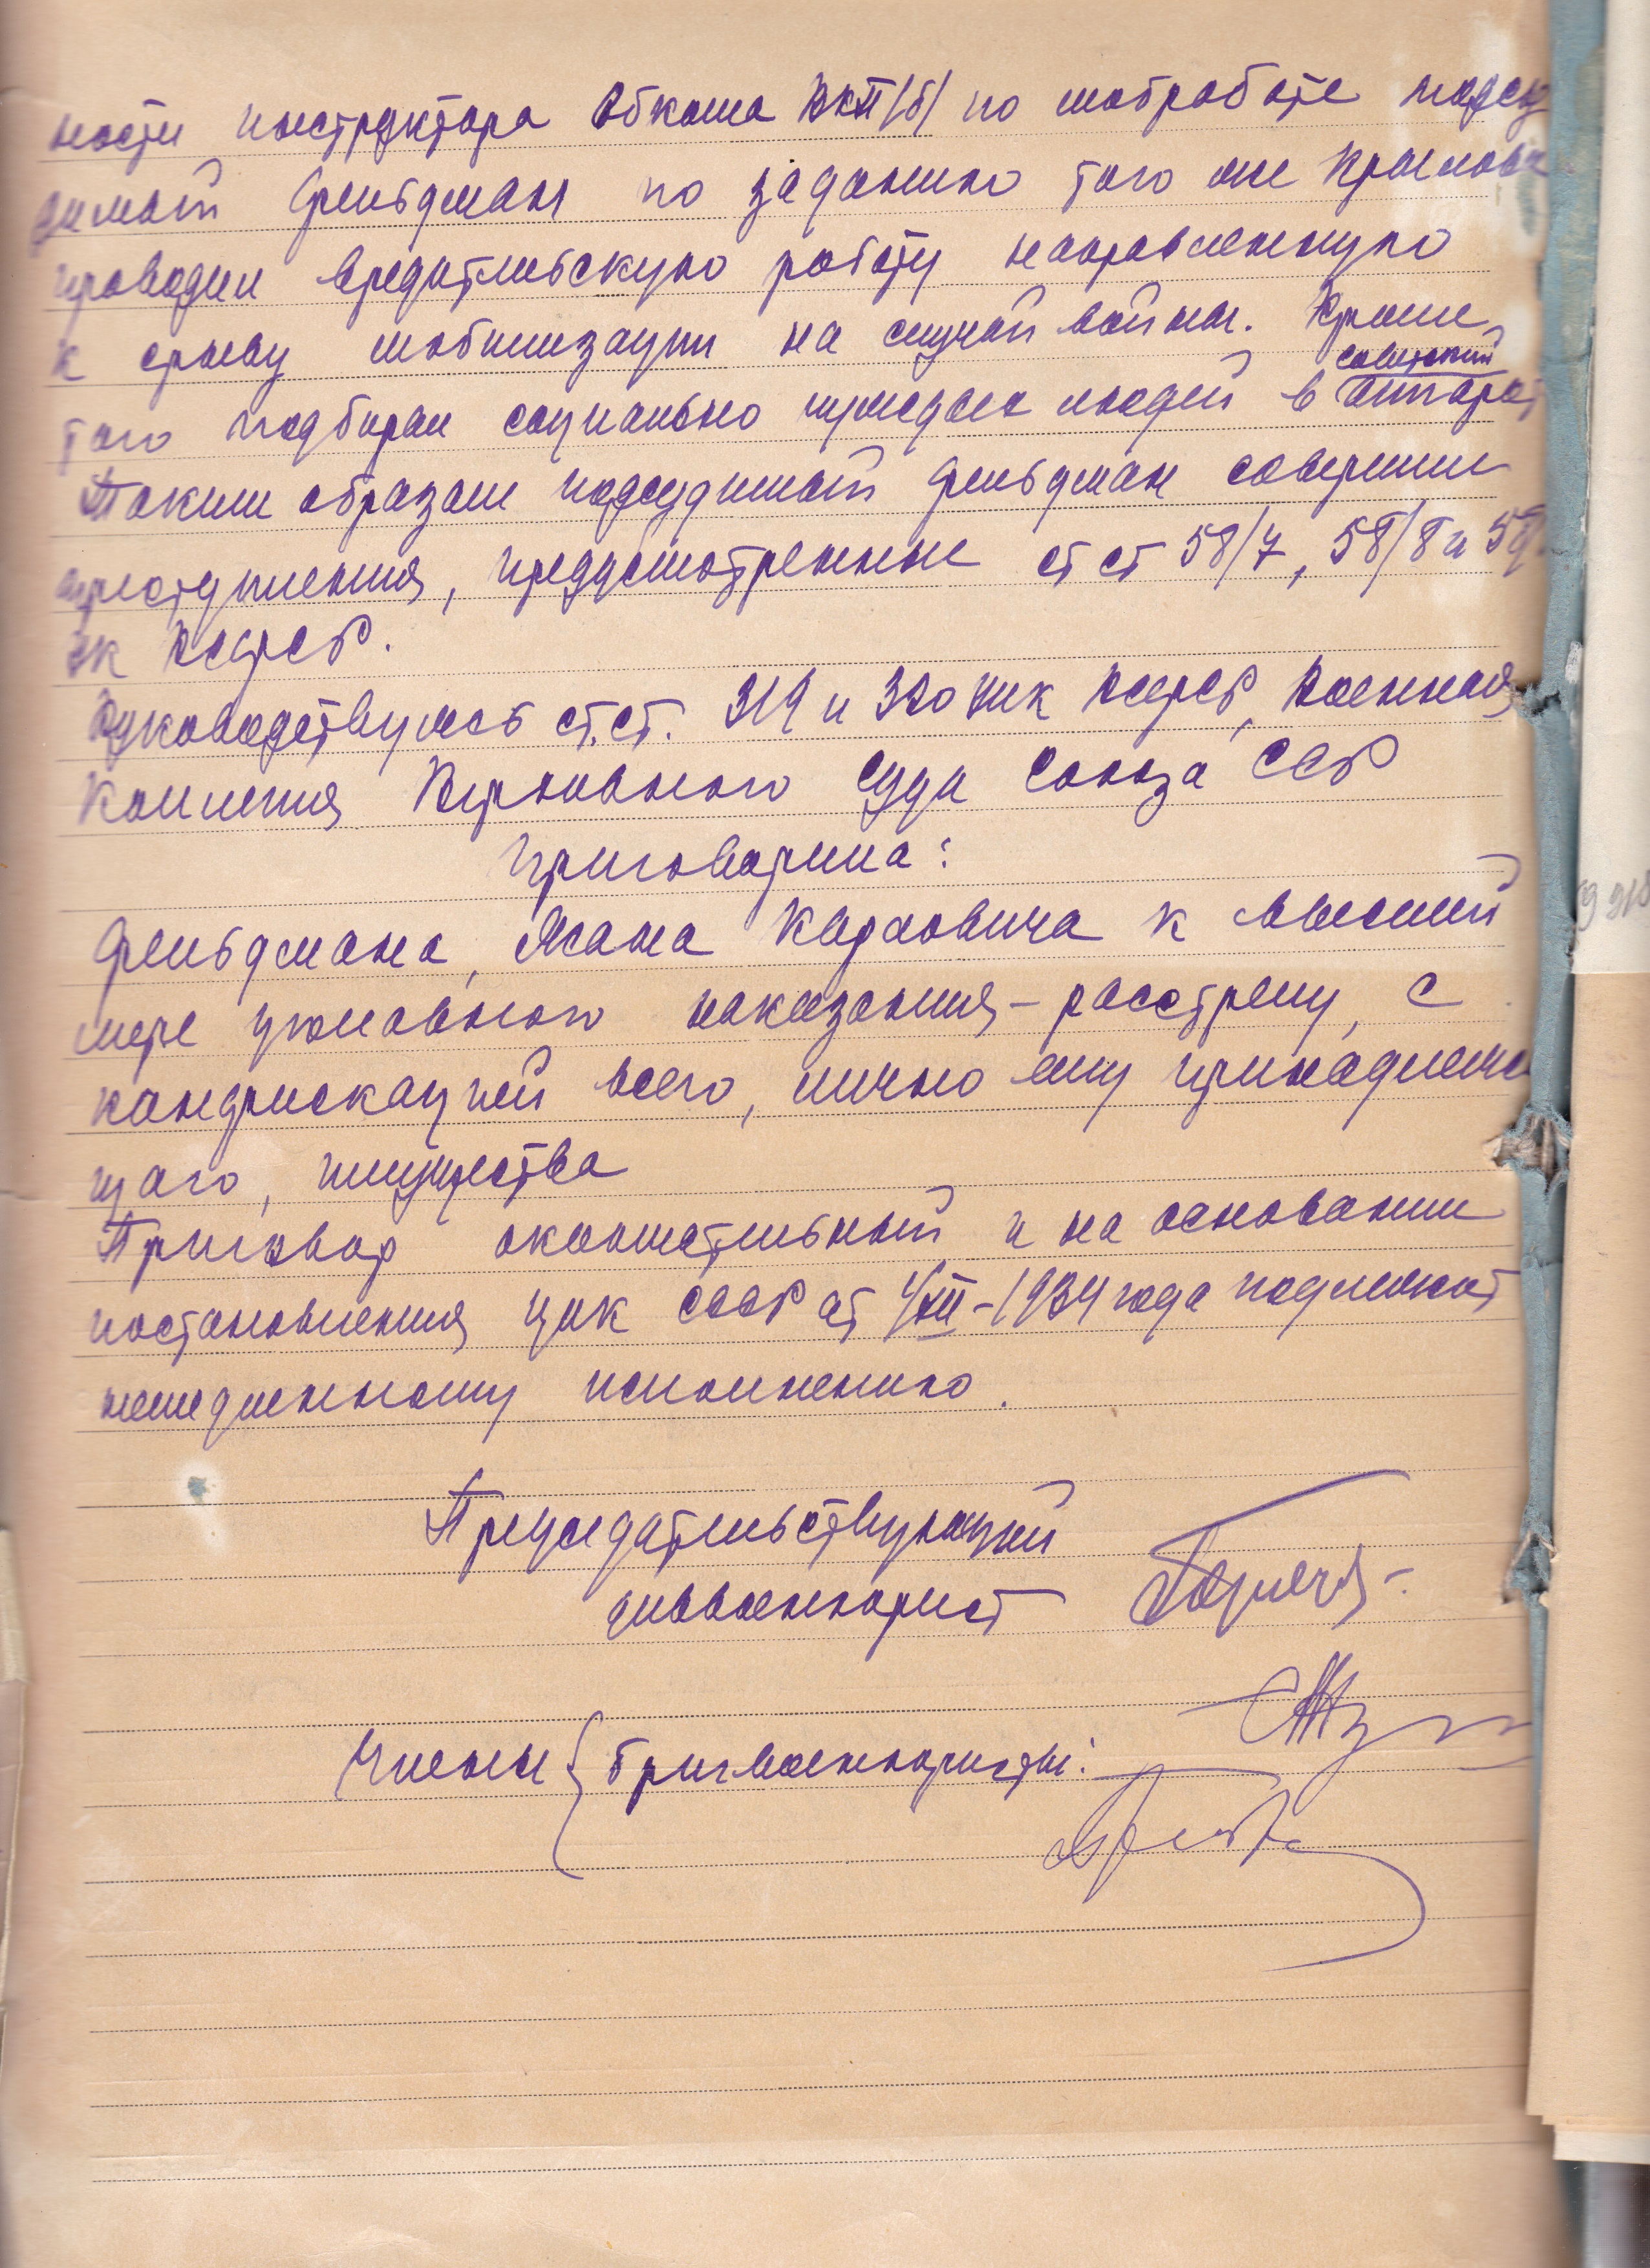 ности инструктора Обкома ВКП/б/ по мобработе подсу
димый Фельдман по заданию того же
проводил вредительскую работу направленную
к срыву мобилизации на случай войны. Кроме
того подбирал социально чуждых людей в советский аппарат
Таким образом подсудимый Фельдман совершил
преступления, предусмотренные ст ст 58/7, 58/8 и
УК РСФСР.
Руководствуясь ст.ст. 319 и 320 УПК РСФСР, Военная
Коллегия Верховного Суда Союза ССР
Приговорила:
Фельдмана, Карловича к высшей
мере уголовного наказания – расстрелу, с
конфискацией всего, лично ему принадлежа
щаго, имущества
Приговор окончательный и на основании
постановления ЦИК СССР от 1/XII – 1934 года подлежит
немедленному исполнению.
Председательствующий
диввоенюрист
Члены { бригвоенюристы: